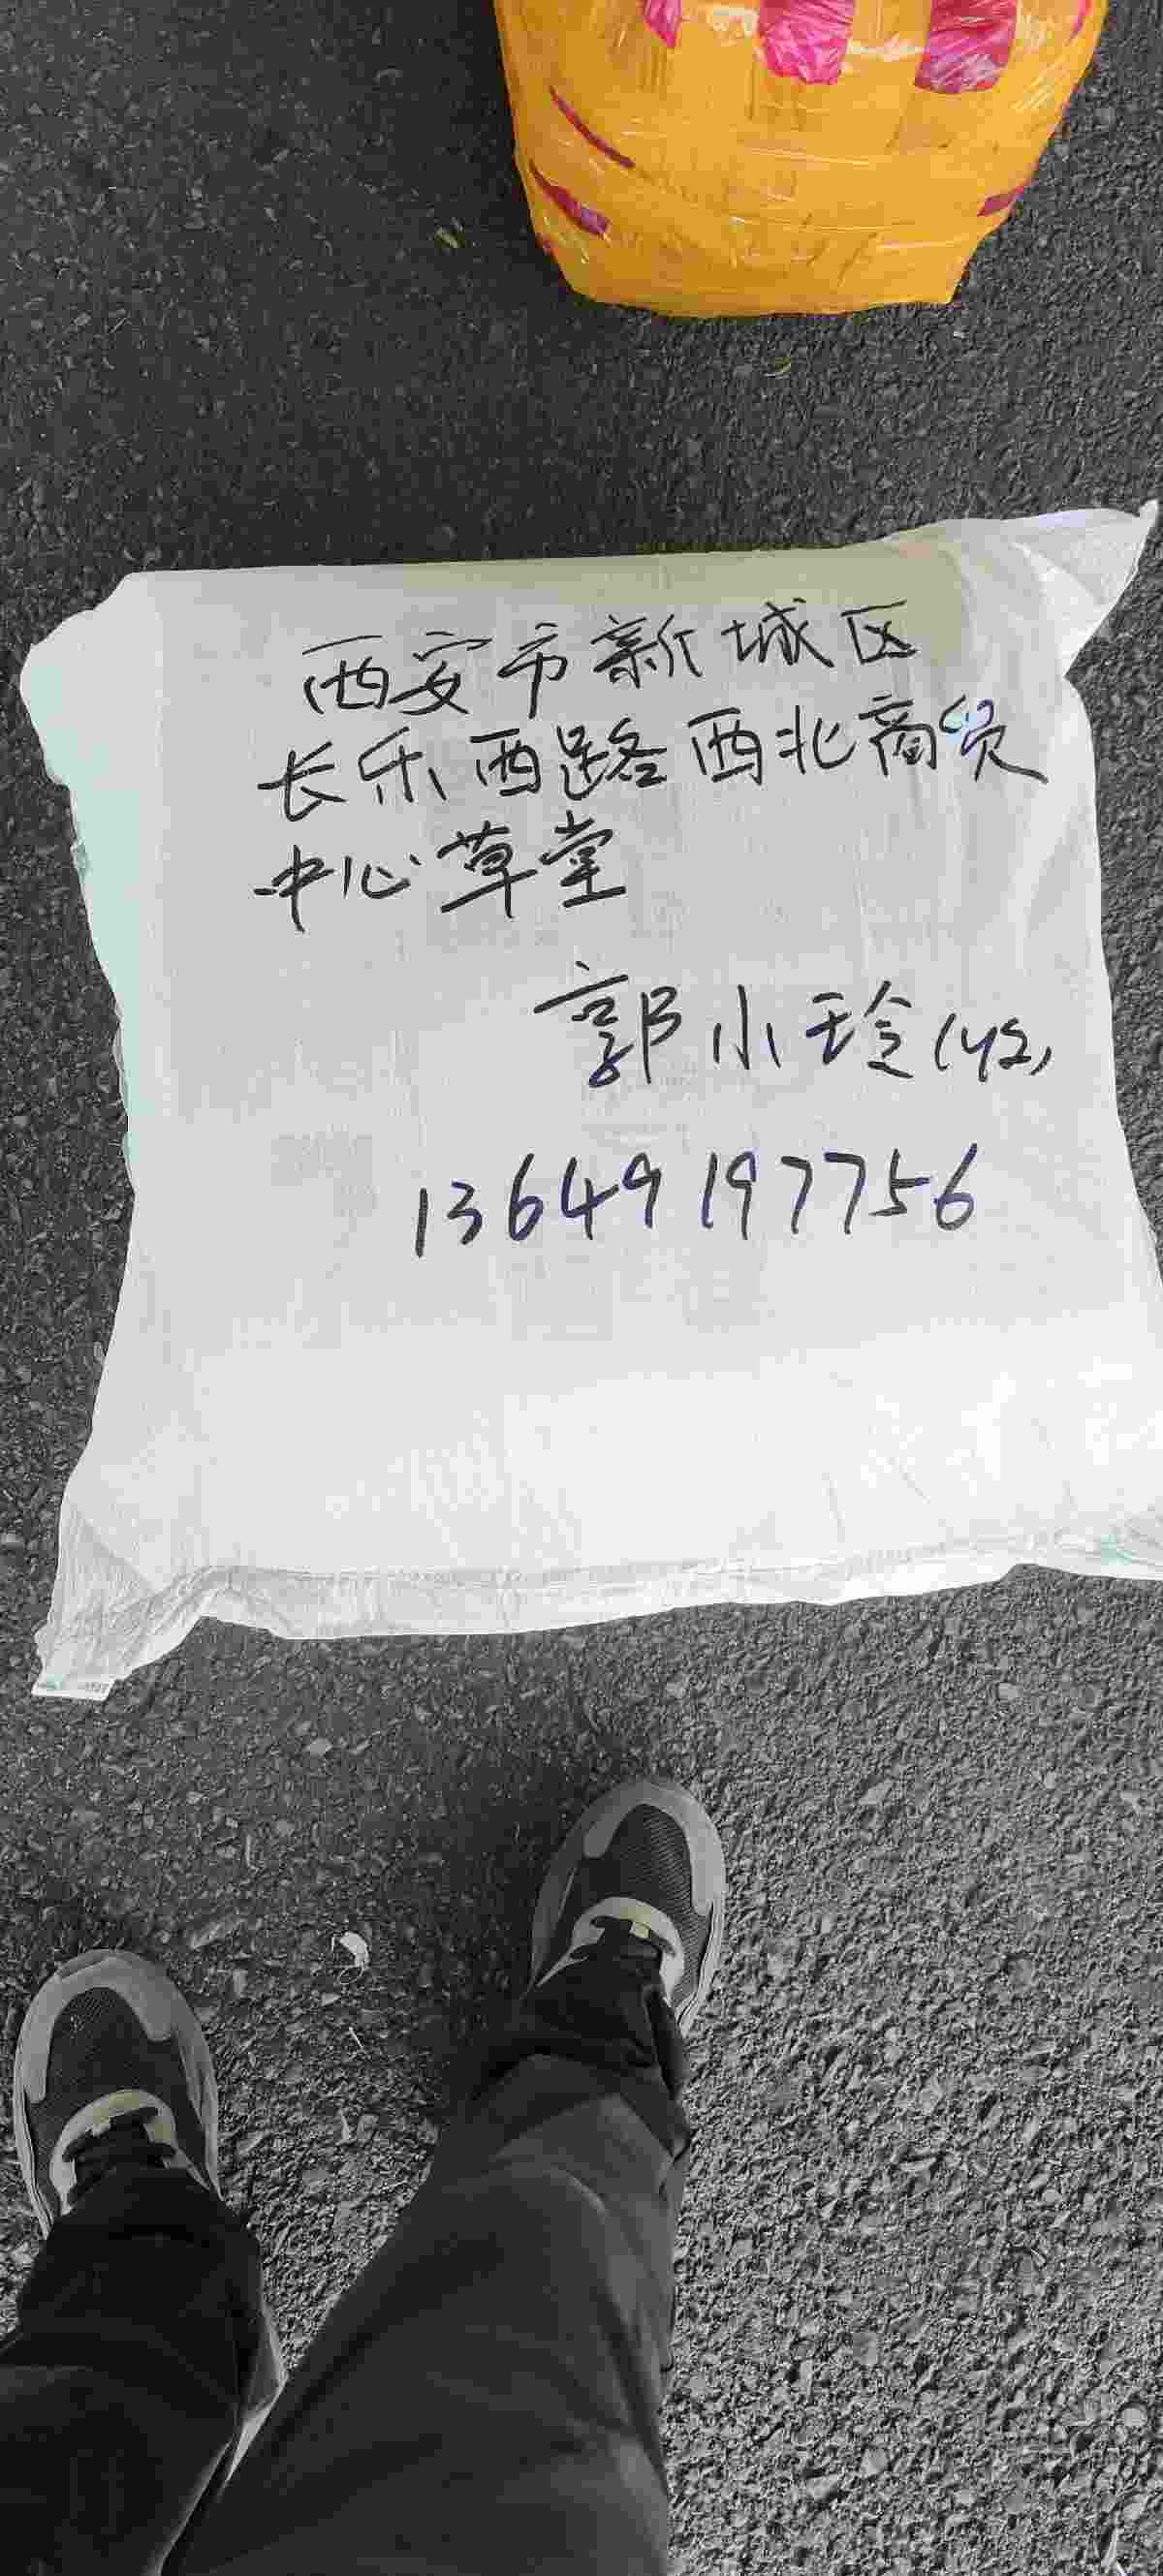 西安市新城区
长乐西路西北商贸
中心草堂
郭小玲(收)
13649197756